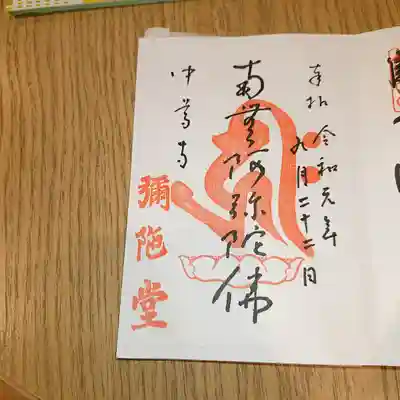 奉拝 令和元年
九月二十二日
南無阿弥陀佛
中尊寺
彌陀堂